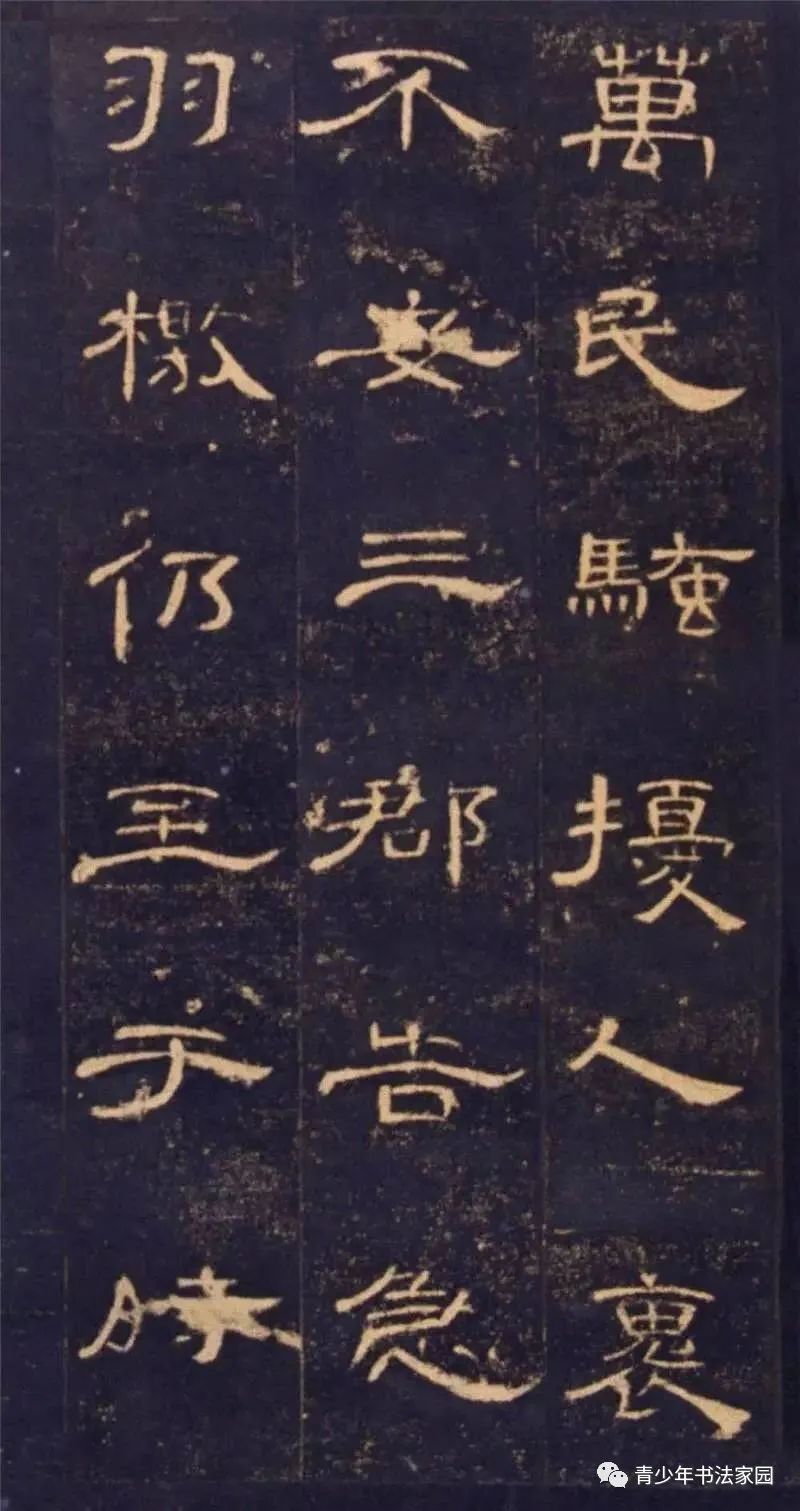 萬民騷擾人裹
不安三郡告急
羽檄仍至于時
青少年书法家园